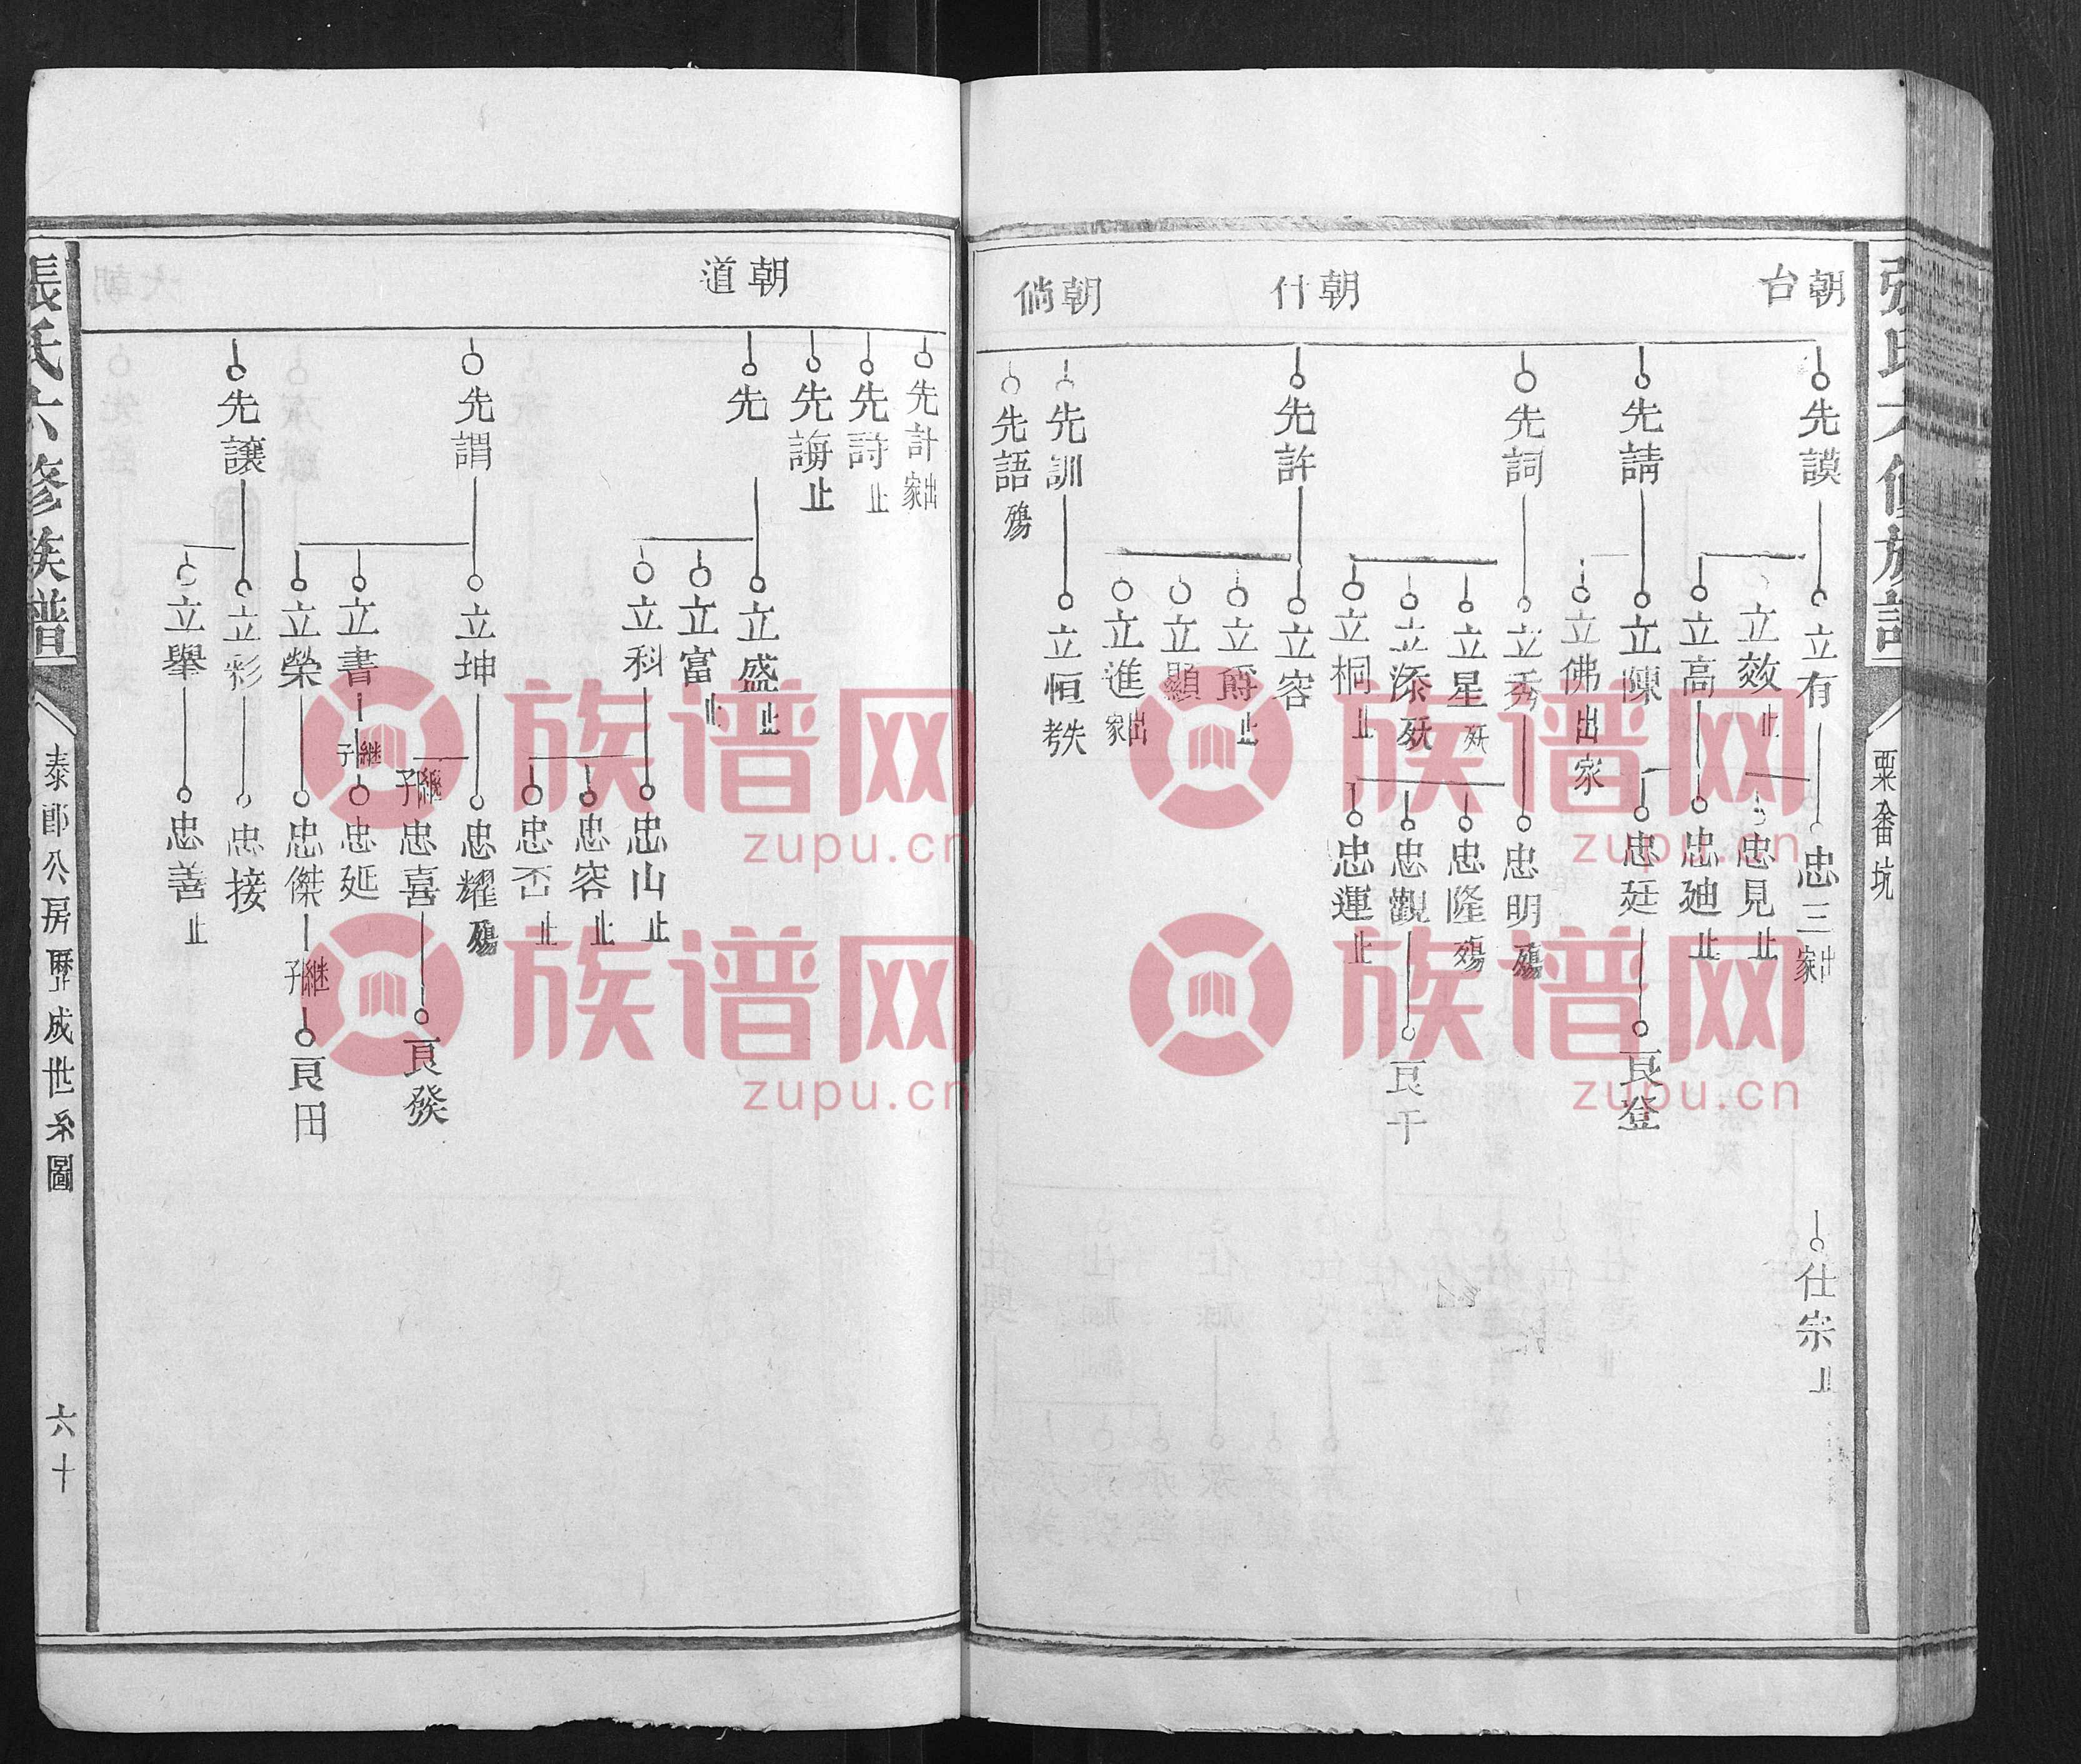 張氏六修族譜
粟畬坑
朝台
朝什
朝倘
先謨
先請
先詞
先許
先訓
先語殤
立有
立效止
立高
立陳
立佛出家
立秀
立星殀
立添殀
立桐止
立容
立爵止
立顯
立進出家
立恒失考
忠三出家
忠見止
忠廸止
忠廷
忠明殤
忠隆殤
忠觀
忠運止
良登
良干
仕宗止
朝道
先計出家
先詩止
先誨止
先
先謂
先讓
立盛止
立富止
立科
立坤
立書
立榮
立彩
立舉
忠山止
忠容止
忠丕止
忠耀殤
繼子忠喜
繼子忠延
忠傑
忠接
忠善止
良發
繼子良田
張氏六修族譜
泰郎公房歷成世系圖
六十
族谱网
zupu.cn
族谱网
zupu.cn
族谱网
zupu.cn
族谱网
zupu.cn